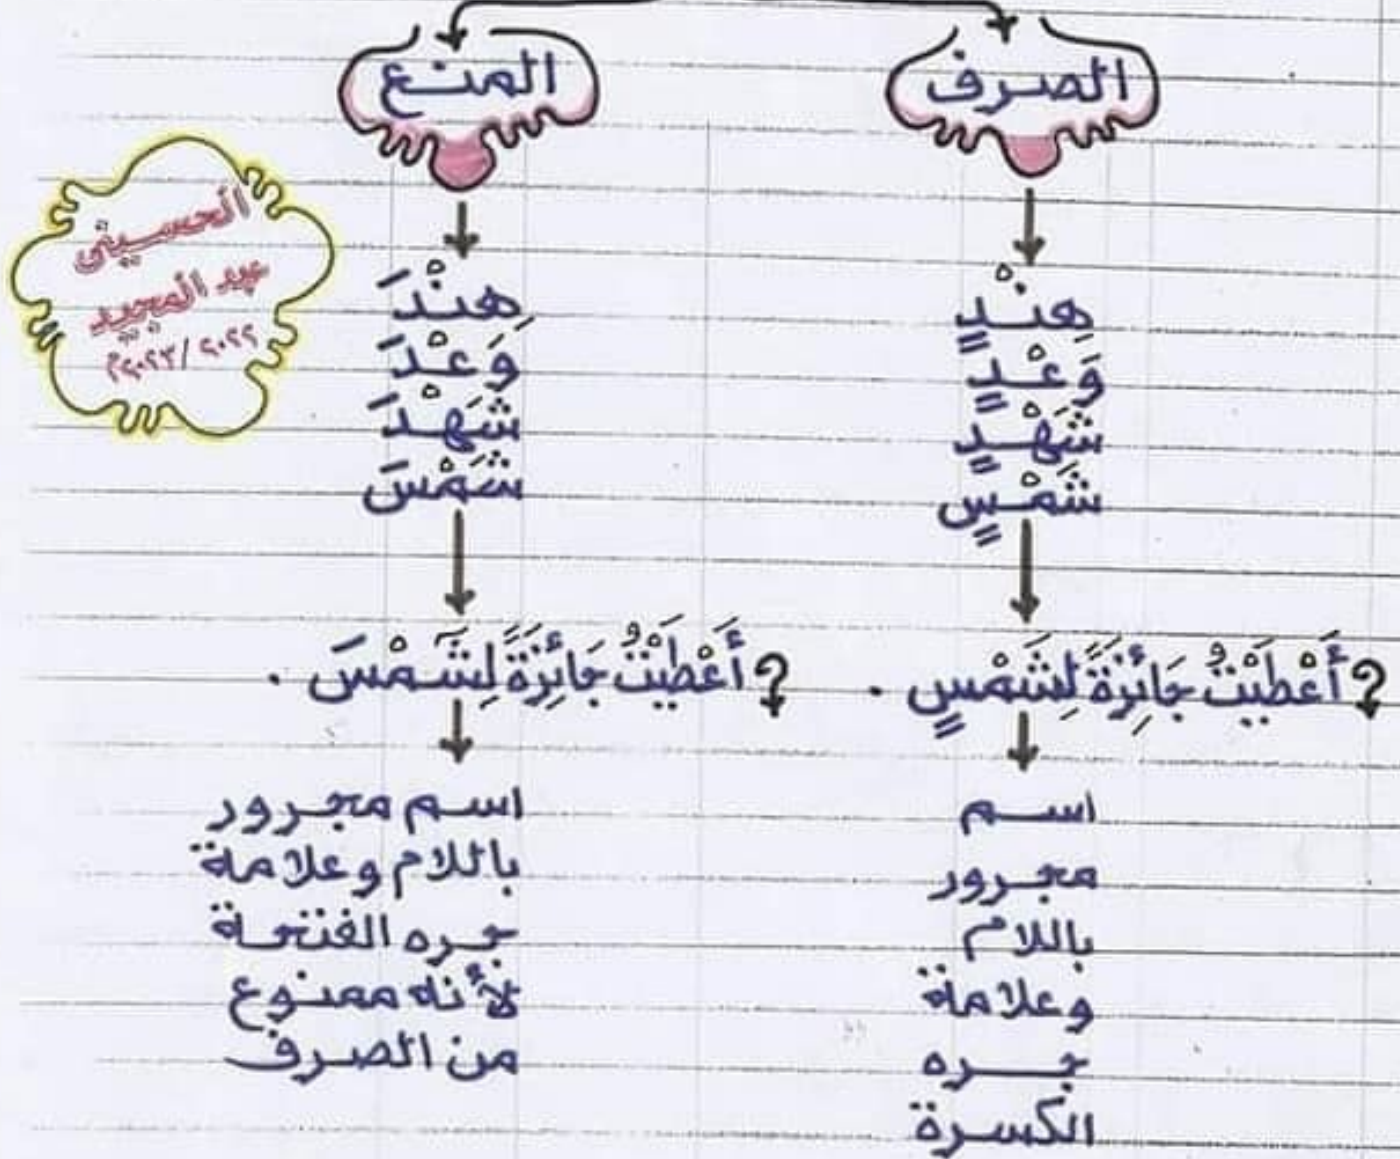 الصرف
هِنْدٍ
وَعْدٍ
شَهْدٍ
شَمْسٍ
أَعْطَيْتُ جَائِزَةً لِشَمْسٍ .
اسم
مجرور
باللام
وعلامة
جره
الكسرة
المنع
هِنْدَ
وَعْدَ
شَهْدَ
شَمْسَ
أَعْطَيْتُ جَائِزَةً لِشَمْسَ .
اسم مجرور
باللام وعلامة
جره الفتحة
لأنه ممنوع
من الصرف
الحسينى
عبد المجيد
٢٠٢٢ / ٢٠٢٣م